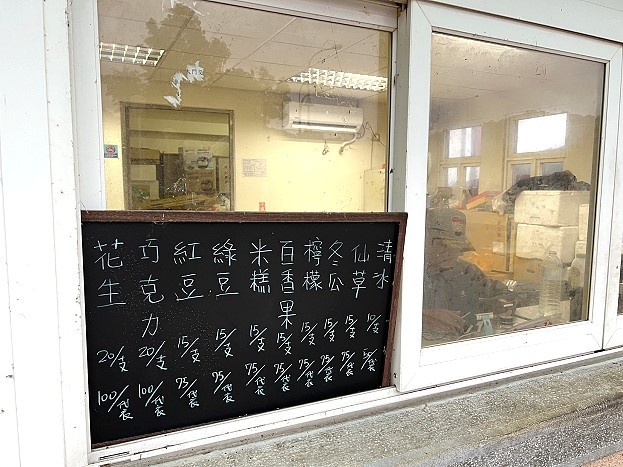 清冰 10/支 50/袋
仙草 15/支 75/袋
冬瓜 15/支 75/袋
檸檬 15/支 75/袋
百香果 15/支 75/袋
米糕 15/支 75/袋
綠豆 15/支 75/袋
紅豆 15/支 75/袋
巧克力 20/支 100/袋
花生 20/支 100/袋